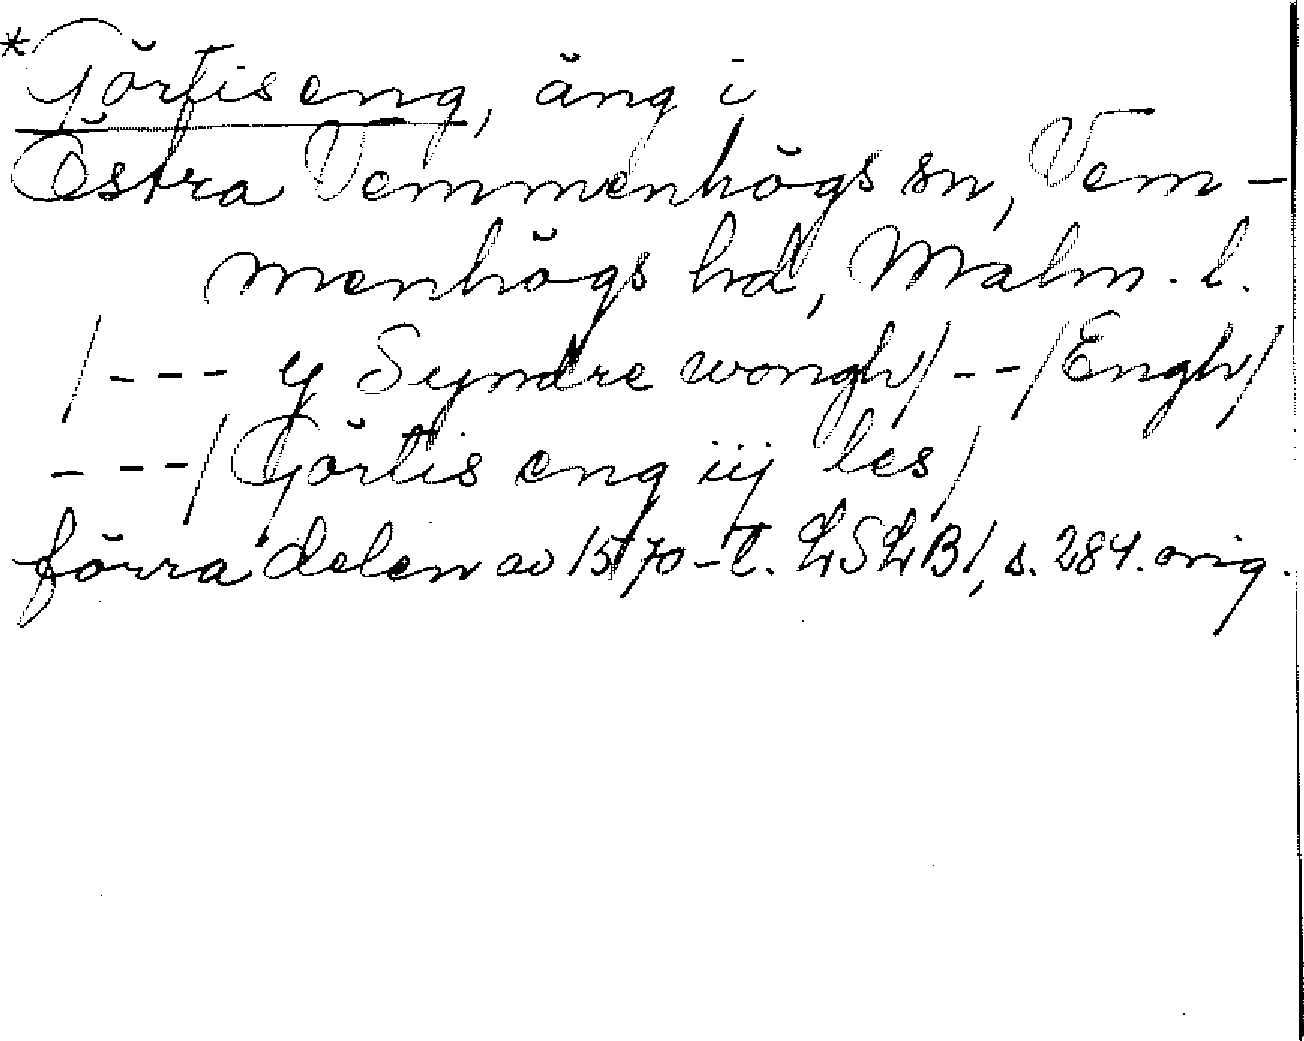 *Görtiseng, äng i
Östra Vemmenhögs sn, Vem-
menhögs hd, Malm. l.
/--- y Syndre wongh/--/Engh/
---/Görtis eng iij les/
förra delen av 1570-t. LSLB1, s. 284. orig.